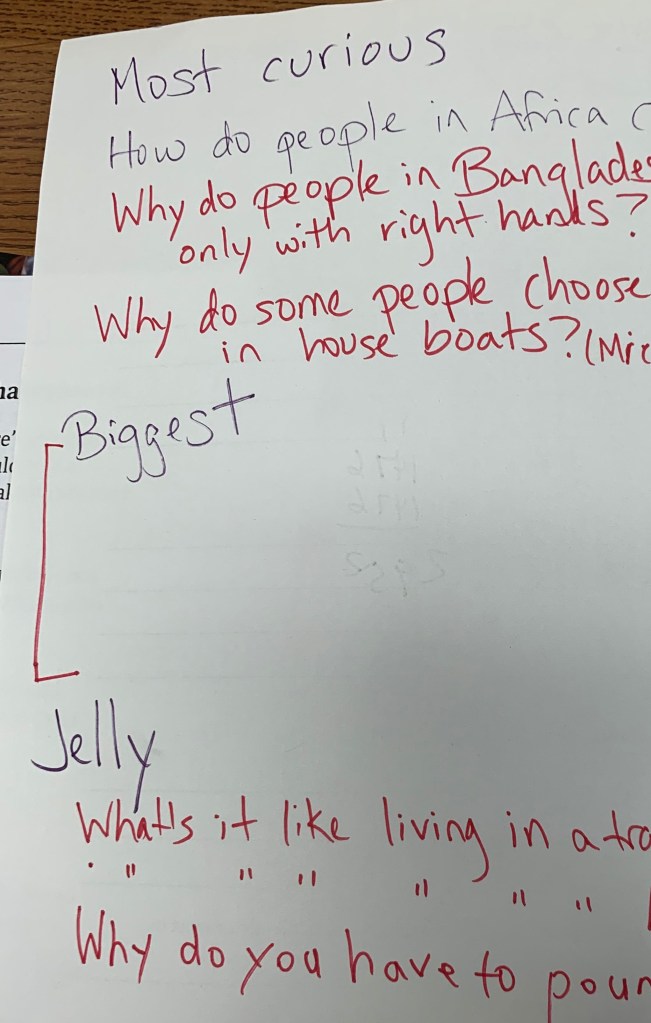 Most curious
How do people in Africa
Why do people in Banglades
only with right hands?
Why do some people choose
in house boats? (Mic
Biggest
Jelly
What's it like living in a tra
" " " " " "
Why do you have to poun